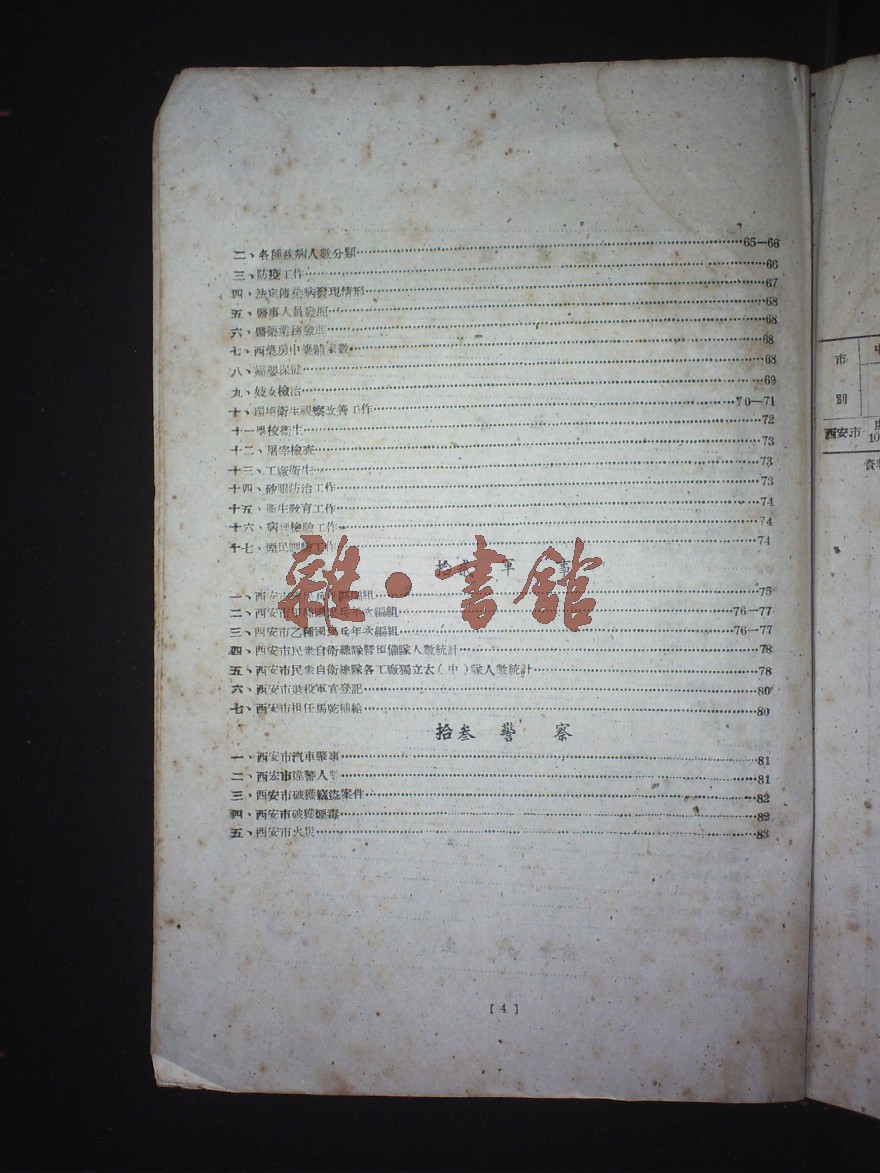 二、各種疾病人數分類……65—66
三、防疫工作……66
四、法定傳染病發現情形……67
五、醫事人員發照……68
六、醫藥業務發照……68
七、西藥房中藥鋪家數……68
八、婦嬰保健……68
九、妓女檢治……69
十、環境衛生視察改善工作……70—71
十一學校衛生……72
十二、屠宰檢查……73
十三、工廠衛生……73
十四、砂眼防治工作……73
十五、衛生教育工作……74
十六、病理檢驗工作……74
十七、煙民調驗工作……74
拾貳 軍 事
雜·書館
一、西安市……編組……75
二、西安市甲種國民兵年次編組……76—77
三、西安市乙種國民兵年次編組……76—77
四、西安市民衆自衛總隊暨預備隊人數統計……78
五、西安市民衆自衛總隊各工廠獨立大(中)隊人數統計……78
六、西安市退役軍官登記……80
七、西安市担任馬乾補給……80
拾叁 警 察
一、西安市汽車肇事……81
二、西安市違警人數……81
三、西安市破獲竊盜案件……82
四、西安市破獲煙毒……82
五、西安市火災……83
[4]
市
別
西安市